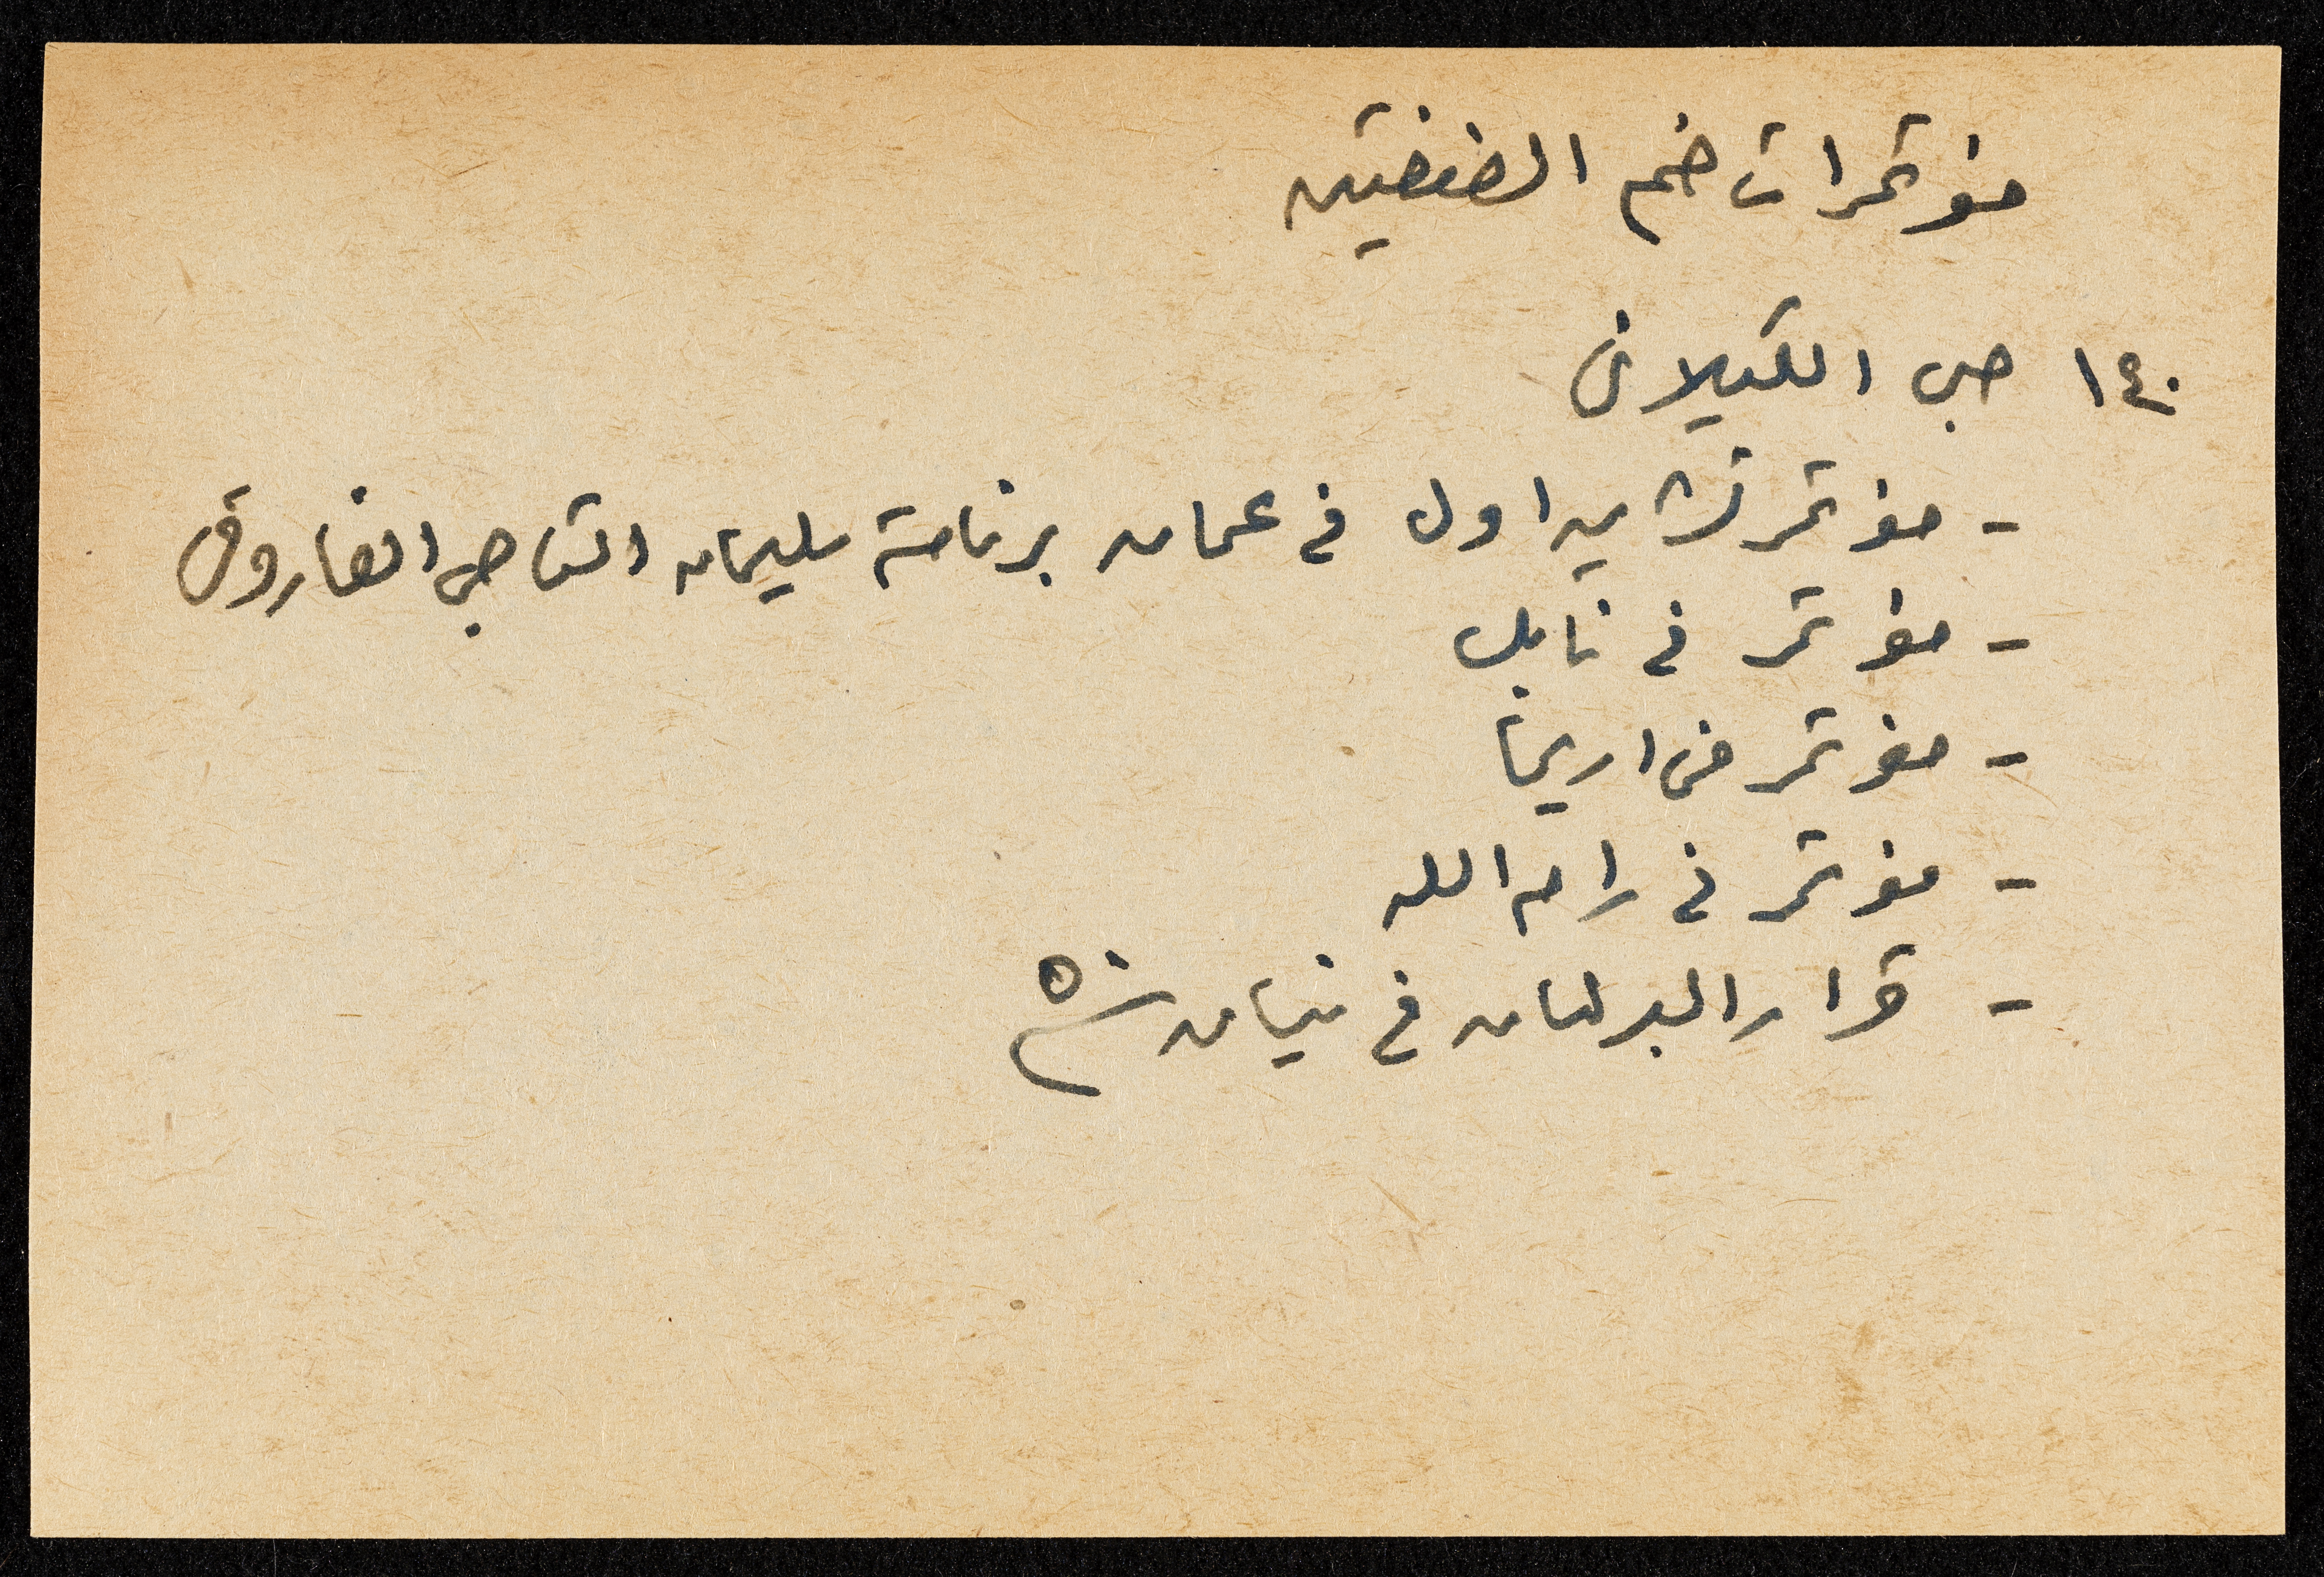 مؤتمرات ضم الضفتين
١٤٠ صبحي الكيلاني
- مؤتمر تشرين اول في عمان برئاسة سليمان التاجي الفاروقي
- مؤتمر في نابلس
- مؤتمر في اريحا
- مؤتمر في رام الله
- قرار البرلمان في نيسان سنة ٥٠